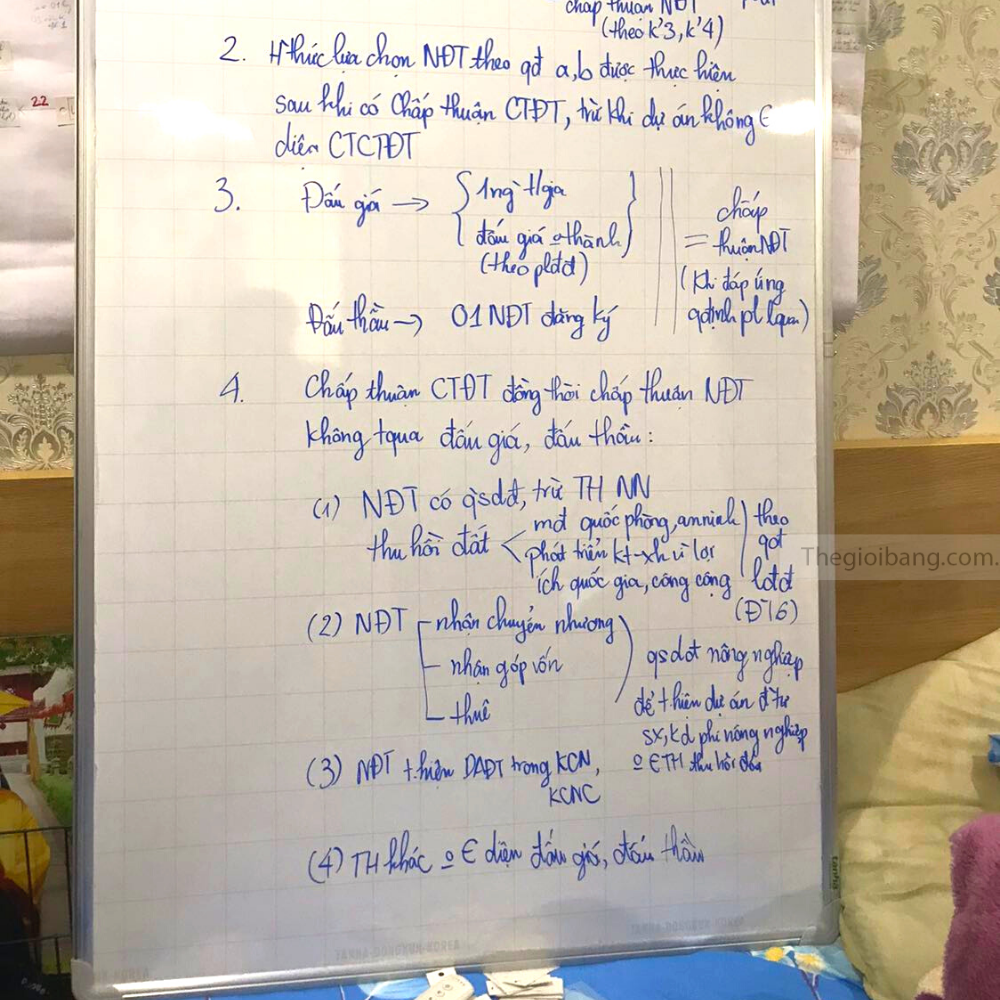 chấp thuận NĐT
(theo k'3, k'4)
2. Hthức lựa chọn NĐT theo qđ a, b được thực hiện
sau khi có Chấp thuận CTĐT, trừ khi dự án không ∈
diện CTCTĐT
3. Đấu giá → { 1ng` t/gia
đấu giá o thành } (theo plđđ)
= chấp thuận NĐT
(khi đáp ứng
qđịnh pl lquan)
Đấu thầu → 01 NĐT đăng ký
4. Chấp thuận CTĐT đồng thời chấp thuận NĐT
không tqua đấu giá, đấu thầu:
(1) NĐT có qsdđ, trừ TH NN
thu hồi đất < mđ quốc phòng, an ninh
phát triển kt-xh vì lợi
ích quốc gia, công cộng
theo
qđ
lđđ
(Đ16)
(2) NĐT - nhận chuyển nhượng
- nhận góp vốn
- thuê
qsdđ nông nghiệp
để thiện dự án đtư
sx, kd phi nông nghiệp
o ∈ TH thu hồi đất
(3) NĐT thiện DAĐT trong KCN,
KCNC
(4) TH khác o ∈ diện đấu giá, đấu thầu
Thegioibang.com.
22